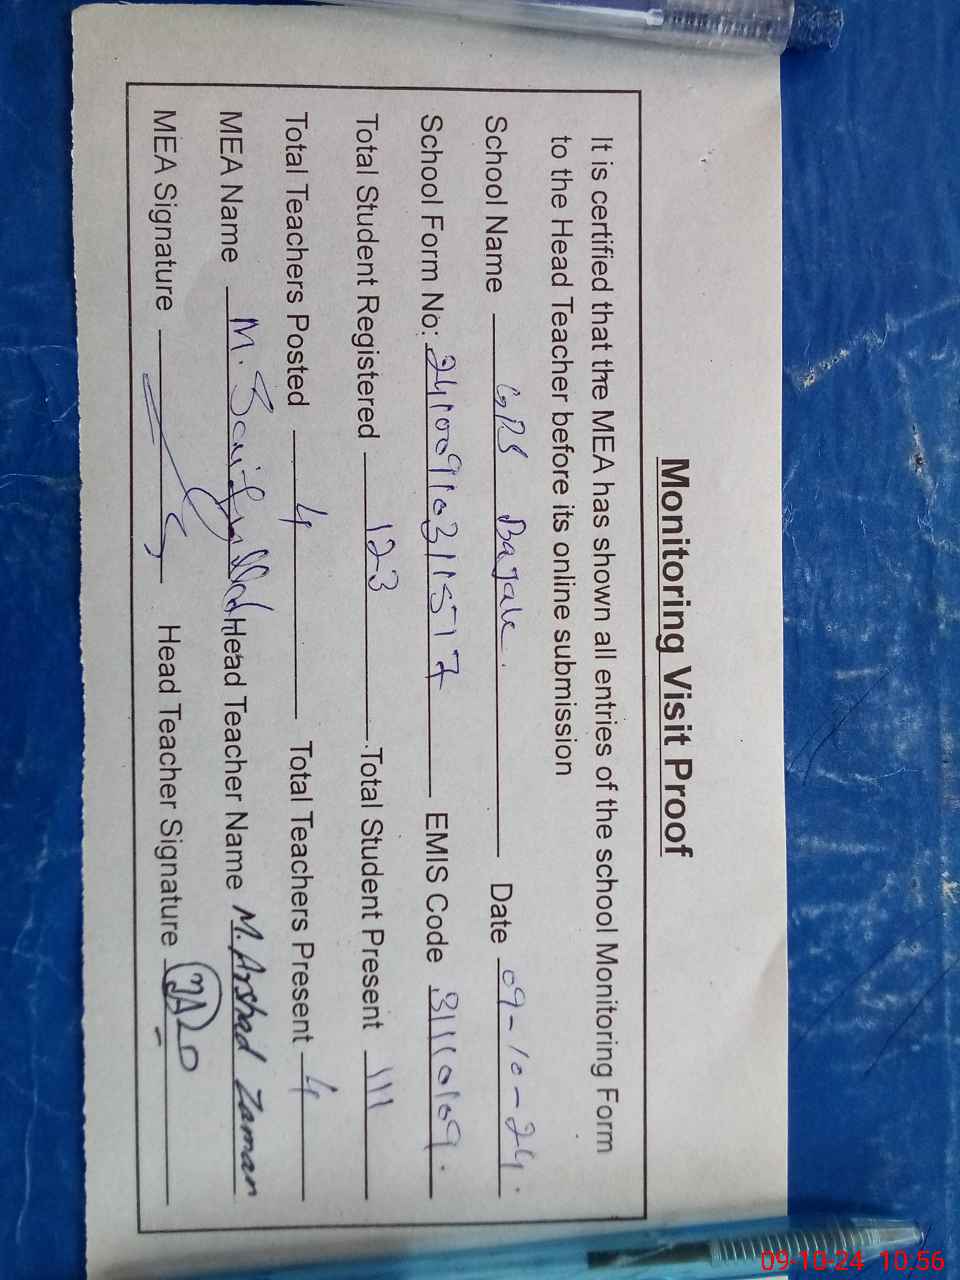 Monitoring Visit Proof
It is certified that the MEA has shown all entries of the school Monitoring Form
to the Head Teacher before its online submission
School Name GPS Bagale. Date 09-10-24.
School Form No: EMIS Code 31110109.
Total Student Registered 123 Total Student Present 111
Total Teachers Posted 4 Total Teachers Present 4
MEA Name M. Saifullah Head Teacher Name M. Arshad Zaman
MEA Signature Head Teacher Signature
09-10-24 10:56